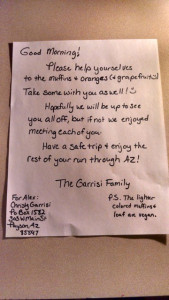 Good Morning!
Please help yourselves
to the muffins & oranges (& grapefruits)
Take some with you as well!
Hopefully we will be up to see
you all off, but if not we enjoyed
meeting each of you.
Have a safe trip & enjoy the
rest of your run through AZ!
The Garrisi Family
For Alex:
Christy Garrisi
Po Box 1582
Payson, AZ
85547
P.S. The lighter
colored muffins &
loaf are vegan.